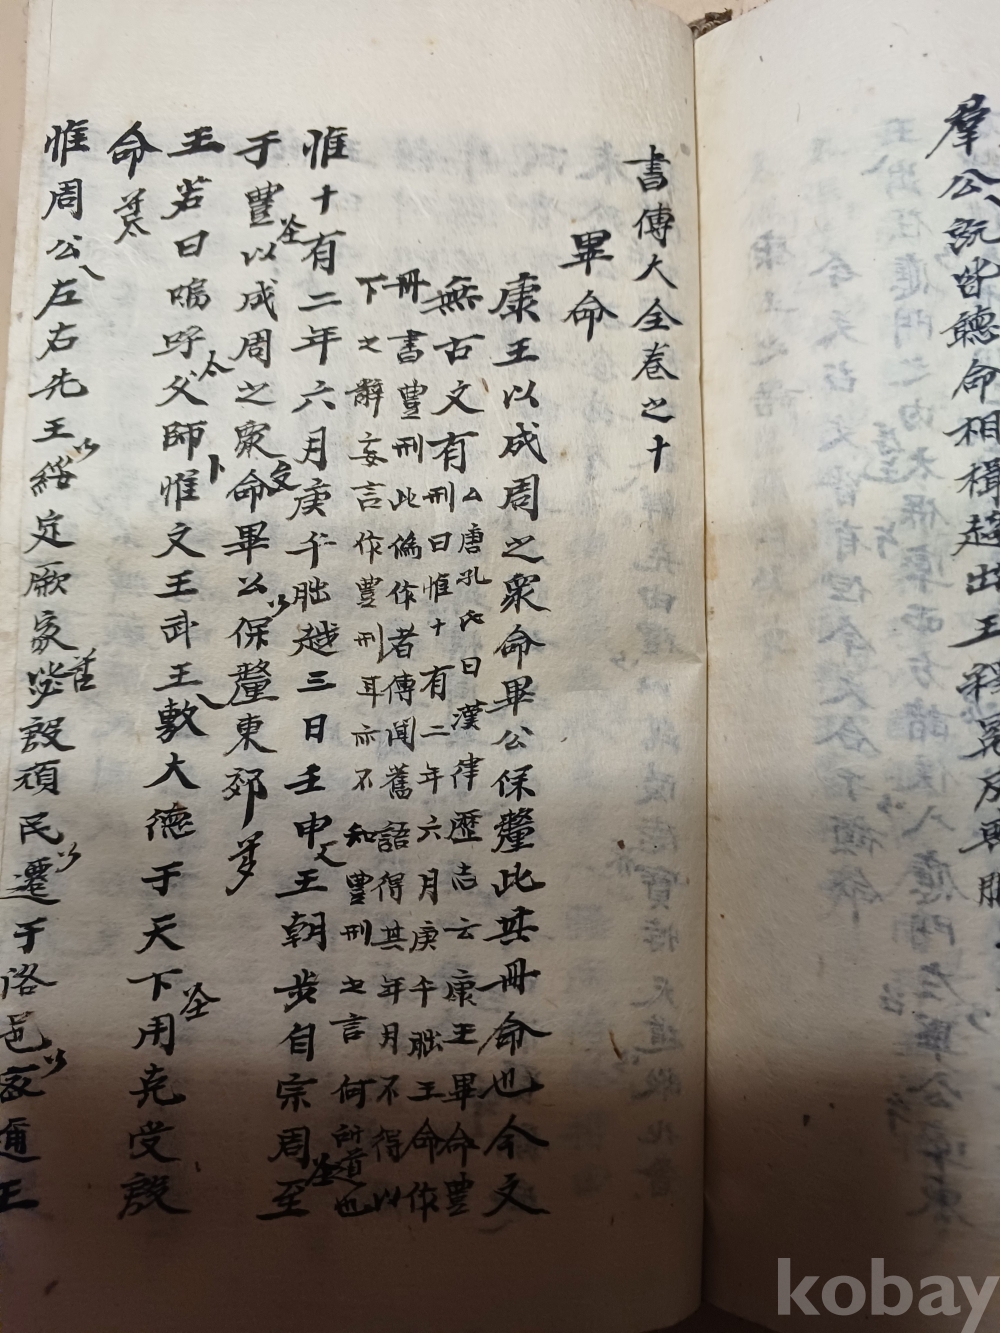 羣公旣皆聽命相揖趨出王釋冕反喪服
書傳大全卷之十
畢命
康王以成周之衆命畢公保釐此其冊命也今文
無古文有
厶唐孔氏曰漢律歷志云康王畢命豊
刑曰惟十有二年六月庚午朏王命作
冊書豊刑此僞作者傳聞舊語得其年月不得以
下之辭妄言作豊刑耳亦不知豊刑之言何所道也
惟十有二年六月庚午朏越三日壬申文王朝步自宗周至
于豊以成周之衆命畢公保釐東郊
王若曰嗚呼父師惟文王武王敷大德于天下用克受殷
命
惟周公左右先王綏定厥家毖殷頑民遷于洛邑密邇王
kobay